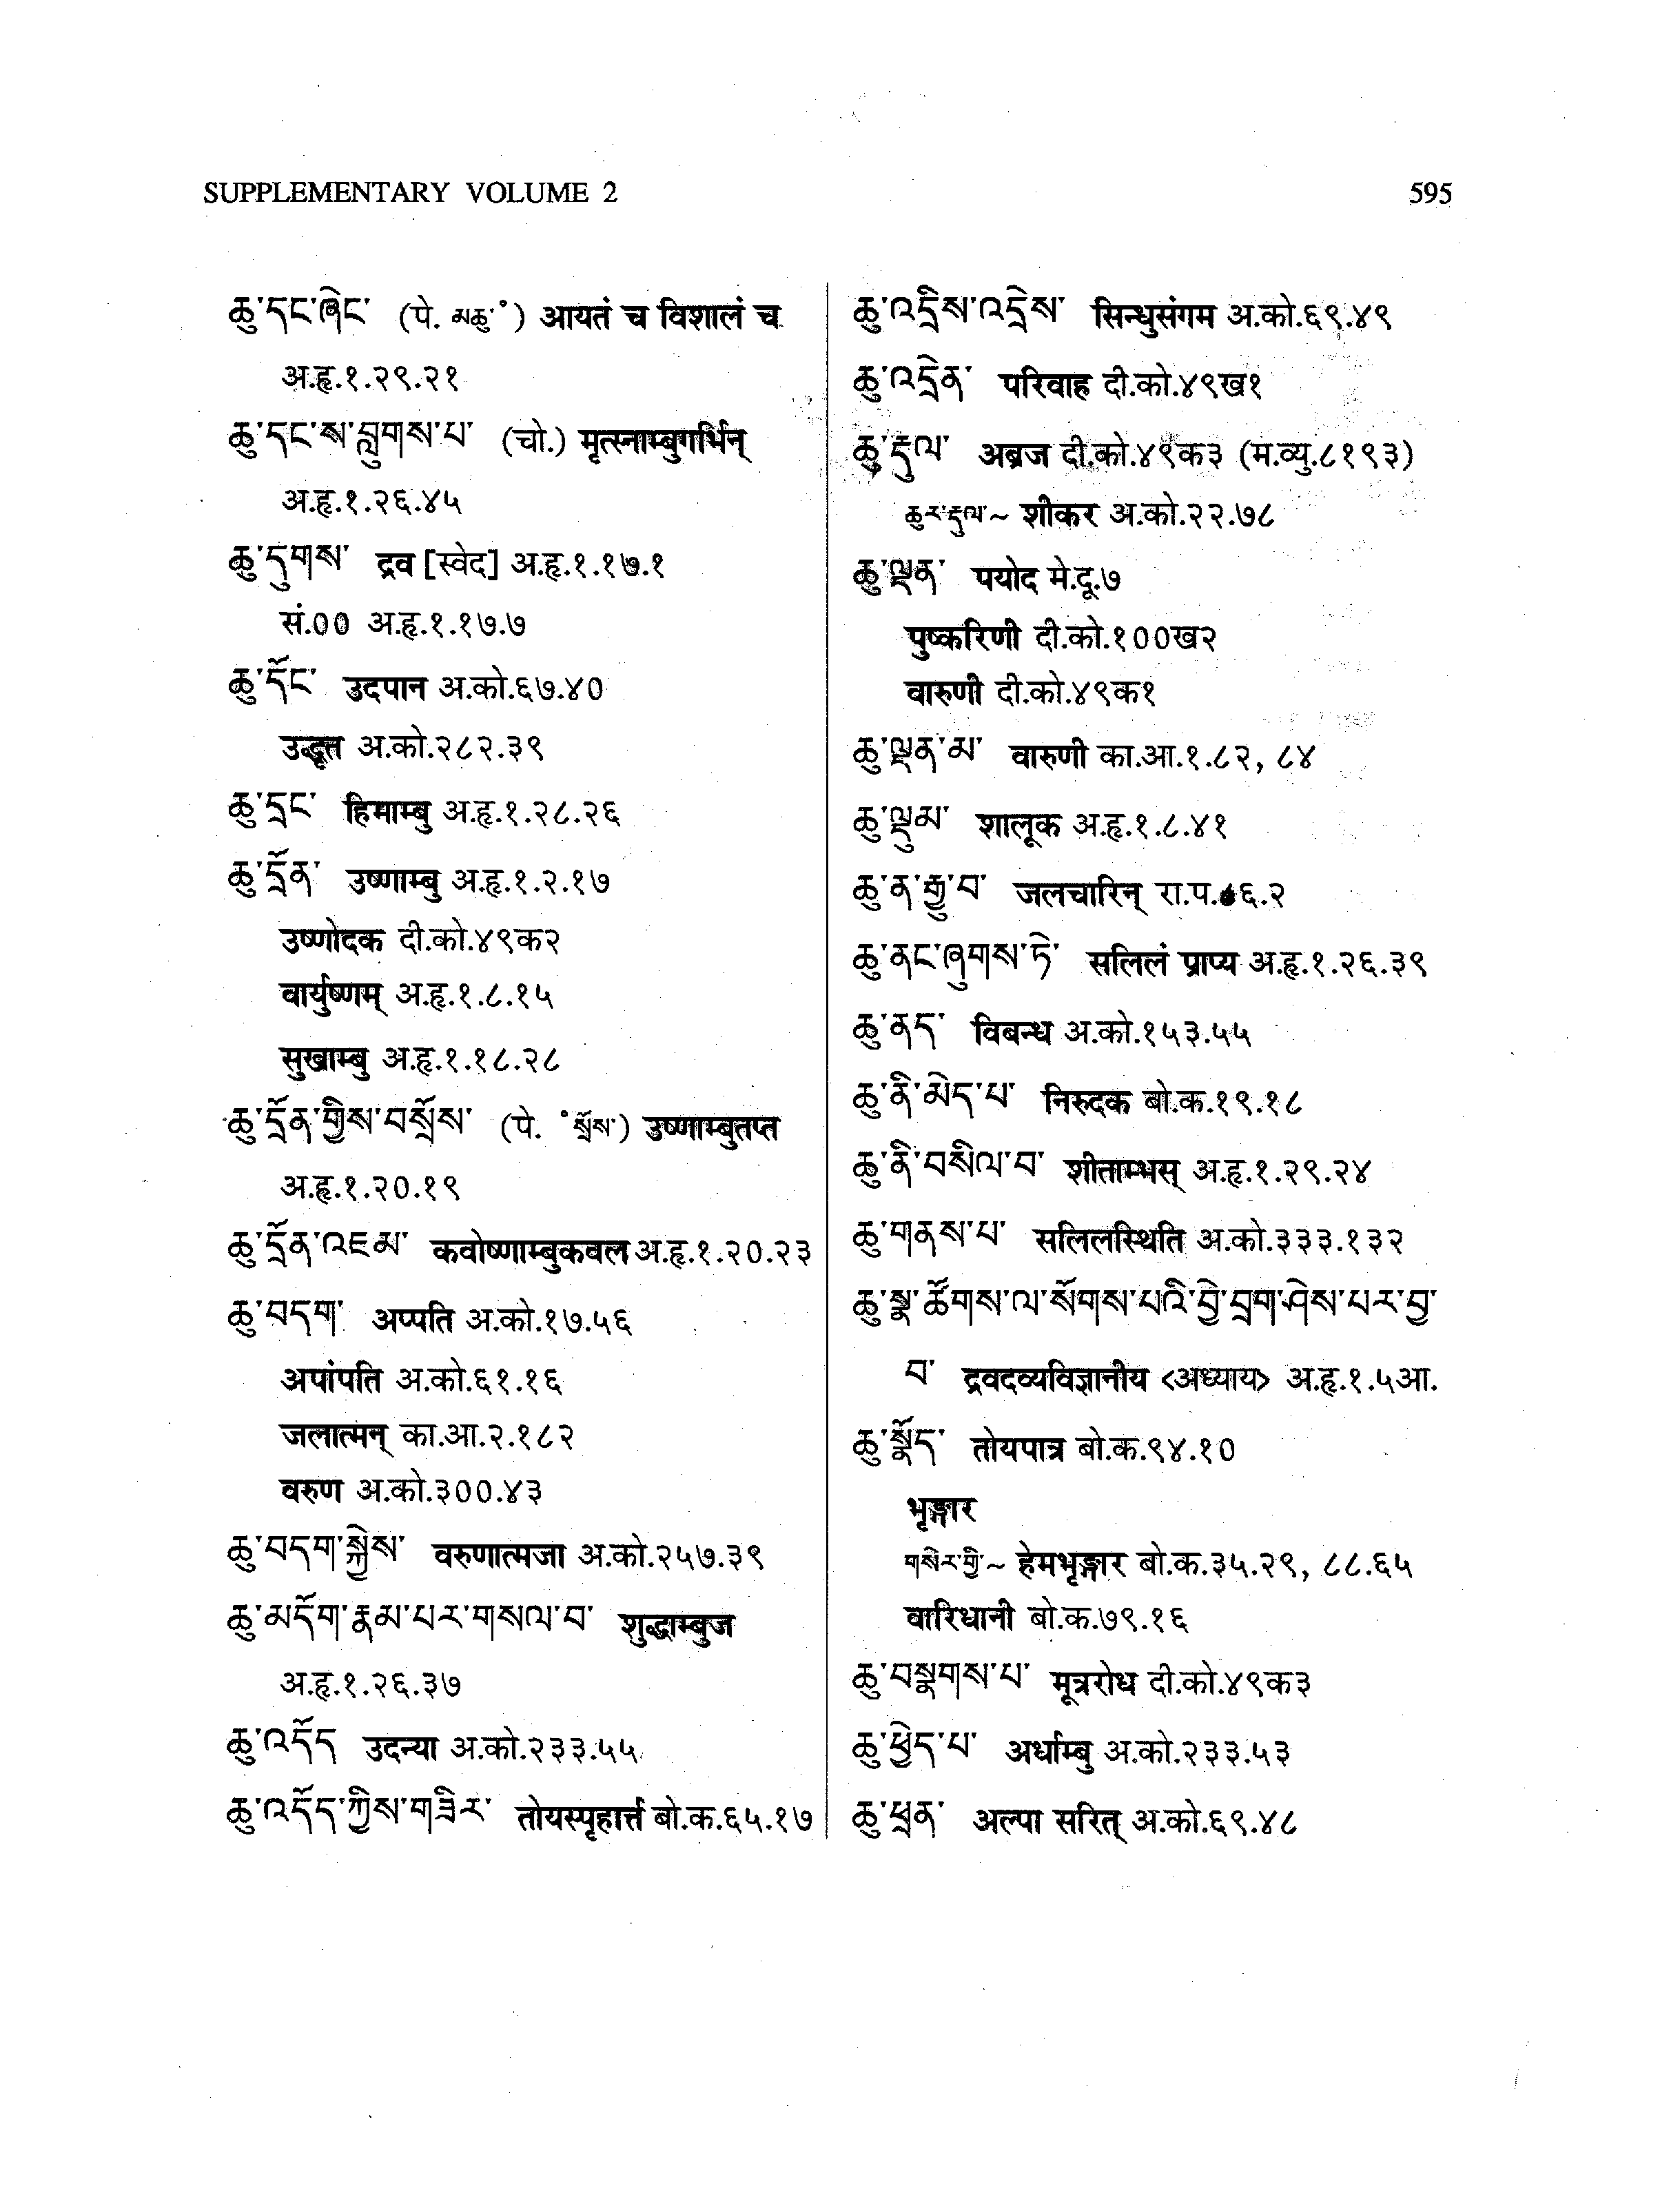 SUPPLEMENTARY VOLUME 2
595
ཆུ་དང་ཞེང་ (पे. མཆུ་°) आयतं च विशालं च
अ.हृ.१.२९.२१
ཆུ་དང་ས་བླུགས་པ་ (चो.) मृत्स्नाम्बुगर्भिन्
अ.हृ.१.२६.४५
ཆུ་དུགས་ द्रव [स्वेद] अ.हृ.१.१७.१
सं.00 अ.हृ.१.१७.७
ཆུ་དོང་ उदपान अ.को.६७.४०
अ.को.२८२.३९
ཆུ་དྲང་ हिमाम्बु अ.हृ.१.२८.२६
ཆུ་དྲོན་ उष्णाम्बु अ.हृ.१.२.१७
उष्णोदक दी.को.४९क२
वार्युष्णम् अ.हृ.१.८.१५
सुखाम्बु अ.हृ.१.१८.२८
ཆུ་དྲོན་གྱིས་བསྲོས་ (पे. °སྲོས་) उष्णाम्बुतप्त
अ.हृ.१.२०.१९
ཆུ་དྲོན་འཇམ་ कवोष्णाम्बुकवल अ.हृ.१.२०.२३
ཆུ་བདག་ अप्पति अ.को.१७.५६
अपांपति अ.को.६१.१६
जलात्मन् का.आ.२.१८२
वरुण अ.को.३००.४३
ཆུ་བདག་སྐྱེས་ वरुणात्मजा अ.को.२५७.३९
ཆུ་མདོག་རྣམ་པར་གསལ་བ་ शुद्धाम्बुज
अ.हृ.१.२६.३७
ཆུ་འདོད उदन्या अ.को.२३३.५५
ཆུ་འདོད་ཀྱིས་གཟིར་ तोयस्पृहार्त्त बो.क.६५.१७
ཆུ་འདྲིས་འདྲེས་ सिन्धुसंगम अ.को.६९.४९
ཆུ་འདྲེན་ परिवाह दी.को.४९ख१
ཆུ་རྡུལ་ अब्रज दी.को.४९क३ (म.व्यु.८१९३)
ཆུར་རྡུལ་~ शीकर अ.को.२२.७८
ཆུ་ལྡན་ पयोद मे.दू.७
पुष्करिणी दी.को.१००ख२
वारुणी दी.को.४९क१
ཆུ་ལྡན་མ་ वारुणी का.आ.१.८२, ८४
ཆུ་ལྡུམ་ शालूक अ.हृ.१.८.४१
ཆུ་ན་རྒྱུ་བ་ जलचारिन् रा.प.६.२
ཆུ་ནང་ཞུགས་ཏེ་ सलिलं प्राप्य अ.हृ.१.२६.३९
ཆུ་ནད་ विबन्ध अ.को.१५३.५५
ཆུ་ནི་མེད་པ་ निरुदक बो.क.१९.१८
ཆུ་ནི་བསིལ་བ་ शीताम्भस् अ.हृ.१.२९.२४
ཆུ་གནས་པ་ सलिलस्थिति अ.को.३३३.१३२
ཆུ་སྣ་ཚོགས་ལ་སོགས་པའི་བྱེ་བྲག་ཤེས་པར་བྱ་
བ་ द्रवदव्यविज्ञानीय <अध्याय> अ.हृ.१.५आ.
ཆུ་སྣོད་ तोयपात्र बो.क.९४.१०
भृङ्गार
གསེར་གྱི་~ हेमभृङ्गार बो.क.३५.२९, ८८.६५
वारिधानी बो.क.७९.१६
ཆུ་བསྣགས་པ་ मूत्ररोध दी.को.४९क३
ཆུ་ཕྱེད་པ་ अर्धाम्बु अ.को.२३३.५३
ཆུ་ཕྲན་ अल्पा सरित् अ.को.६९.४८